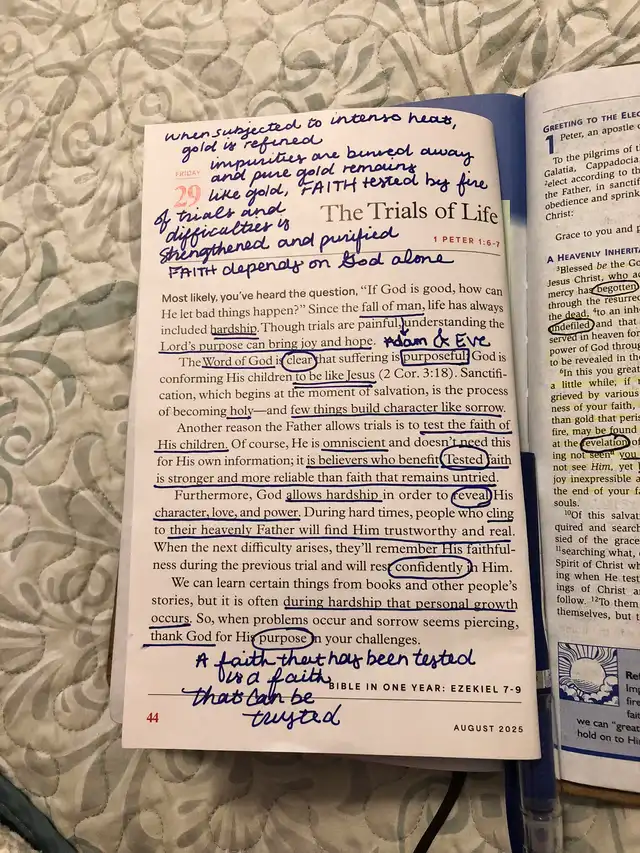 when subjected to intense heat,
gold is refined
impurities are burned away
and pure gold remains
like gold, FAITH tested by fire
of trials and
difficulties is
strengthened and purified
FAITH depends on God alone
FRIDAY
29
The Trials of Life
1 PETER 1:6-7
Most likely, you've heard the question, "If God is good, how can
He let bad things happen?" Since the fall of man, life has always
included hardship. Though trials are painful, understanding the
Lord's purpose can bring joy and hope. Adam & Eve
The Word of God is clear that suffering is purposeful: God is
conforming His children to be like Jesus (2 Cor. 3:18). Sanctifi-
cation, which begins at the moment of salvation, is the process
of becoming holy—and few things build character like sorrow.
Another reason the Father allows trials is to test the faith of
His children. Of course, He is omniscient and doesn't need this
for His own information; it is believers who benefit. Tested faith
is stronger and more reliable than faith that remains untried.
Furthermore, God allows hardship in order to reveal His
character, love, and power. During hard times, people who cling
to their heavenly Father will find Him trustworthy and real.
When the next difficulty arises, they'll remember His faithful-
ness during the previous trial and will rest confidently in Him.
We can learn certain things from books and other people's
stories, but it is often during hardship that personal growth
occurs. So, when problems occur and sorrow seems piercing,
thank God for His purpose in your challenges.
A faith that has been tested
is a faith
that can be
trusted
BIBLE IN ONE YEAR: EZEKIEL 7-9
44
AUGUST 2025
GREETING TO THE ELEC
1 Peter, an apostle
To the pilgrims of t
Galatia, Cappadocia
2elect according to th
the Father, in sanctif
obedience and sprink
Christ:
Grace to you and p
A HEAVENLY INHERIT
3Blessed be the Go
Jesus Christ, who ac
mercy has begotten
through the resurre
the dead, 4to an inhe
undefiled and that
served in heaven for
power of God throug
to be revealed in the
6In this you great
a little while, if
grieved by various
ness of your faith,
than gold that peris
fire, may be found
at the revelation of
ing not seen you
not see Him, yet
joy inexpressible a
the end of your f
souls.
10Of this salvat
quired and search
sied of the grace
11searching what,
Spirit of Christ wh
ing when He test
ings of Christ an
follow. 12To them
themselves, but t
Ref
Imp
fire
fait
we can "great
hold on to Hi